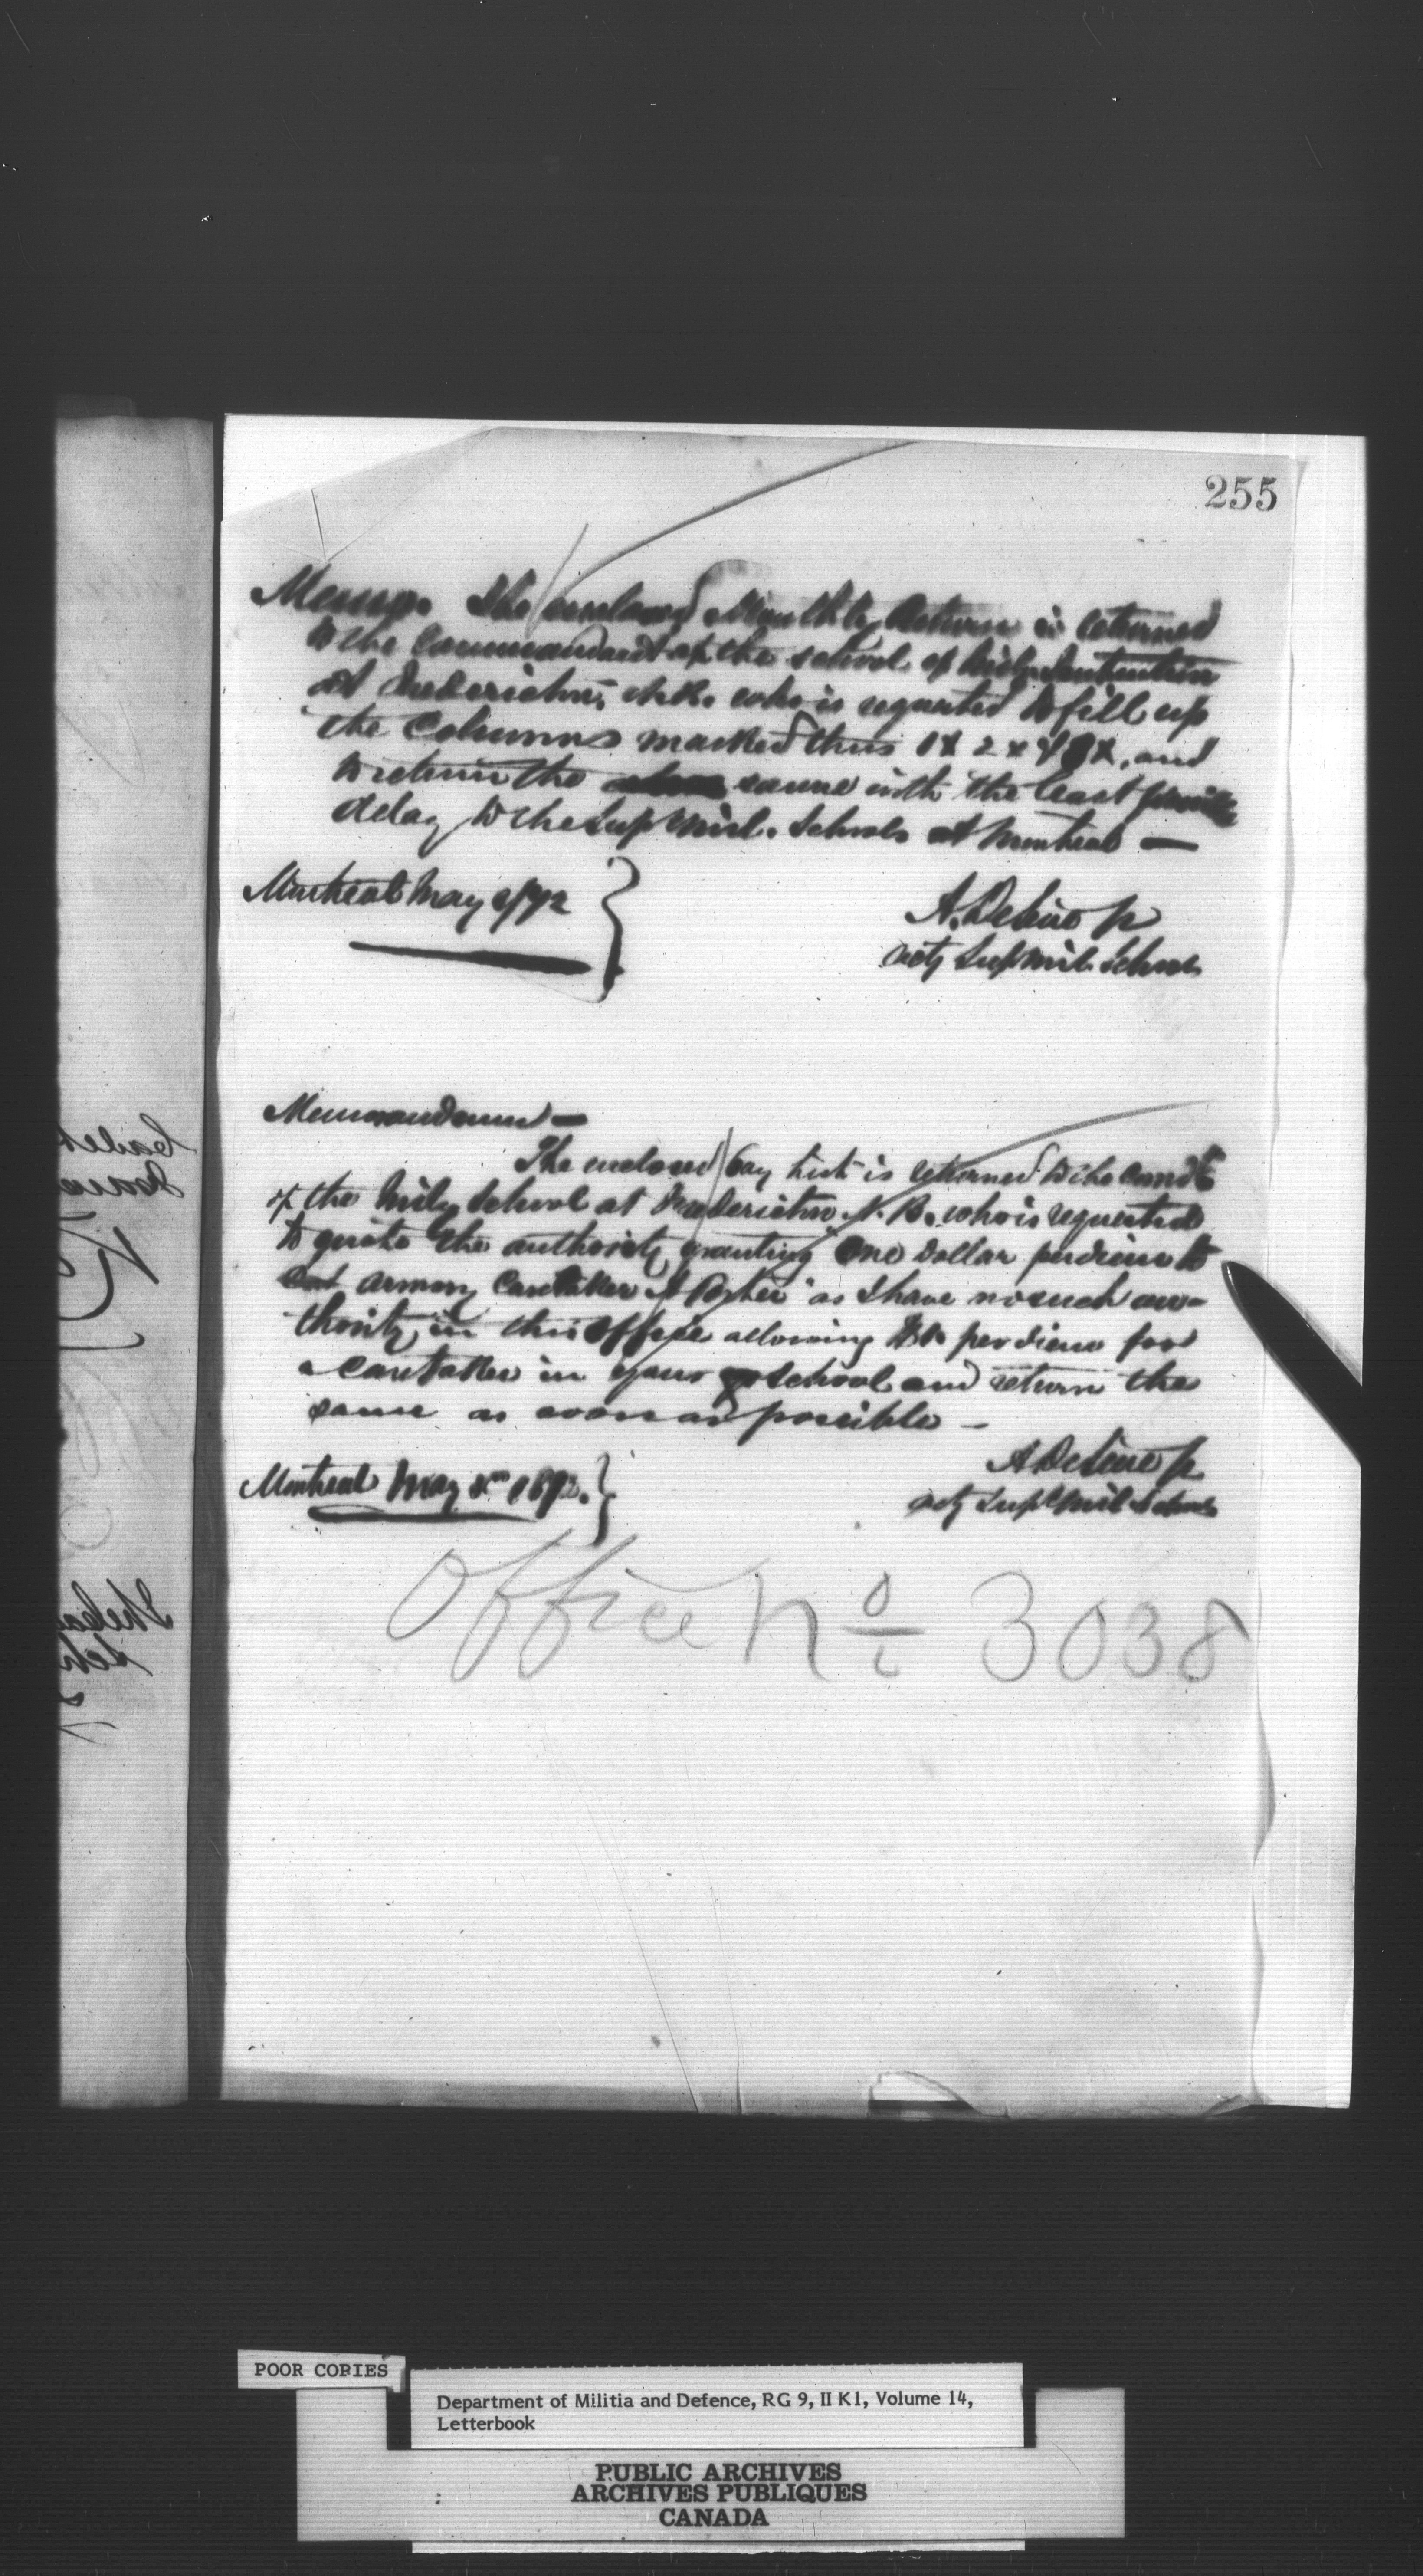 255
Memo. The enclosed Monthly Return is returned
to the Commandant of the school of Mily Instruction
at Fredericton, N.B. who is requested to fill up
the Columns marked thus 1x 2x & x, and
to return the same with the least possible
delay to the Sup Mil. Schools at Montreal —
Montreal May 2/72
A. DeLino
actg Sup Mil Schools
Memorandum —
The enclosed Pay List is returned to the Comdt
of the Mily School at Fredericton N.B. who is requested
to quote the authority granting One Dollar per diem to
armory Caretaker as I have no such au-
thority in this Office allowing per diem for
a Caretaker in your School and return the
same as soon as possible —
Montreal May 1872.
actg Supt Mil Schools
Office No 3038
POOR COPIES
Department of Militia and Defence, RG 9, II K1, Volume 14,
Letterbook
PUBLIC ARCHIVES
ARCHIVES PUBLIQUES
CANADA